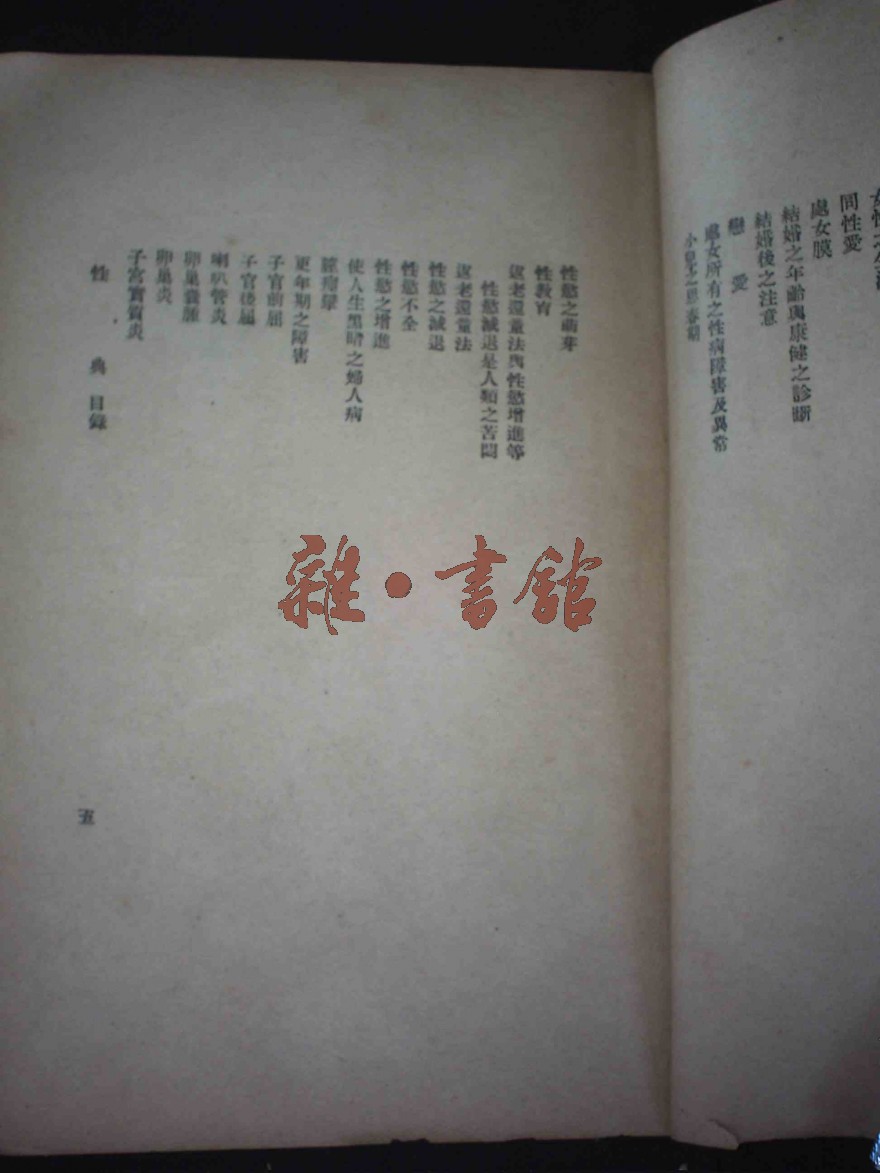 同性愛
處女膜
結婚之年齡與康健之診斷
結婚後之注意
戀愛
處女所有之性病障害及異常
性慾之萌芽
性教育
返老還童法與性慾增進等
性慾減退是人類之苦悶
返老還童法
性慾之減退
性慾不全
性慾之增進
使人生黑暗之婦人病
膣痙攣
更年期之障害
子宮前屈
子宮後屈
喇叭管炎
卵巢囊腫
卵巢炎
子宮實質炎
性典 目錄
五
雜·書館